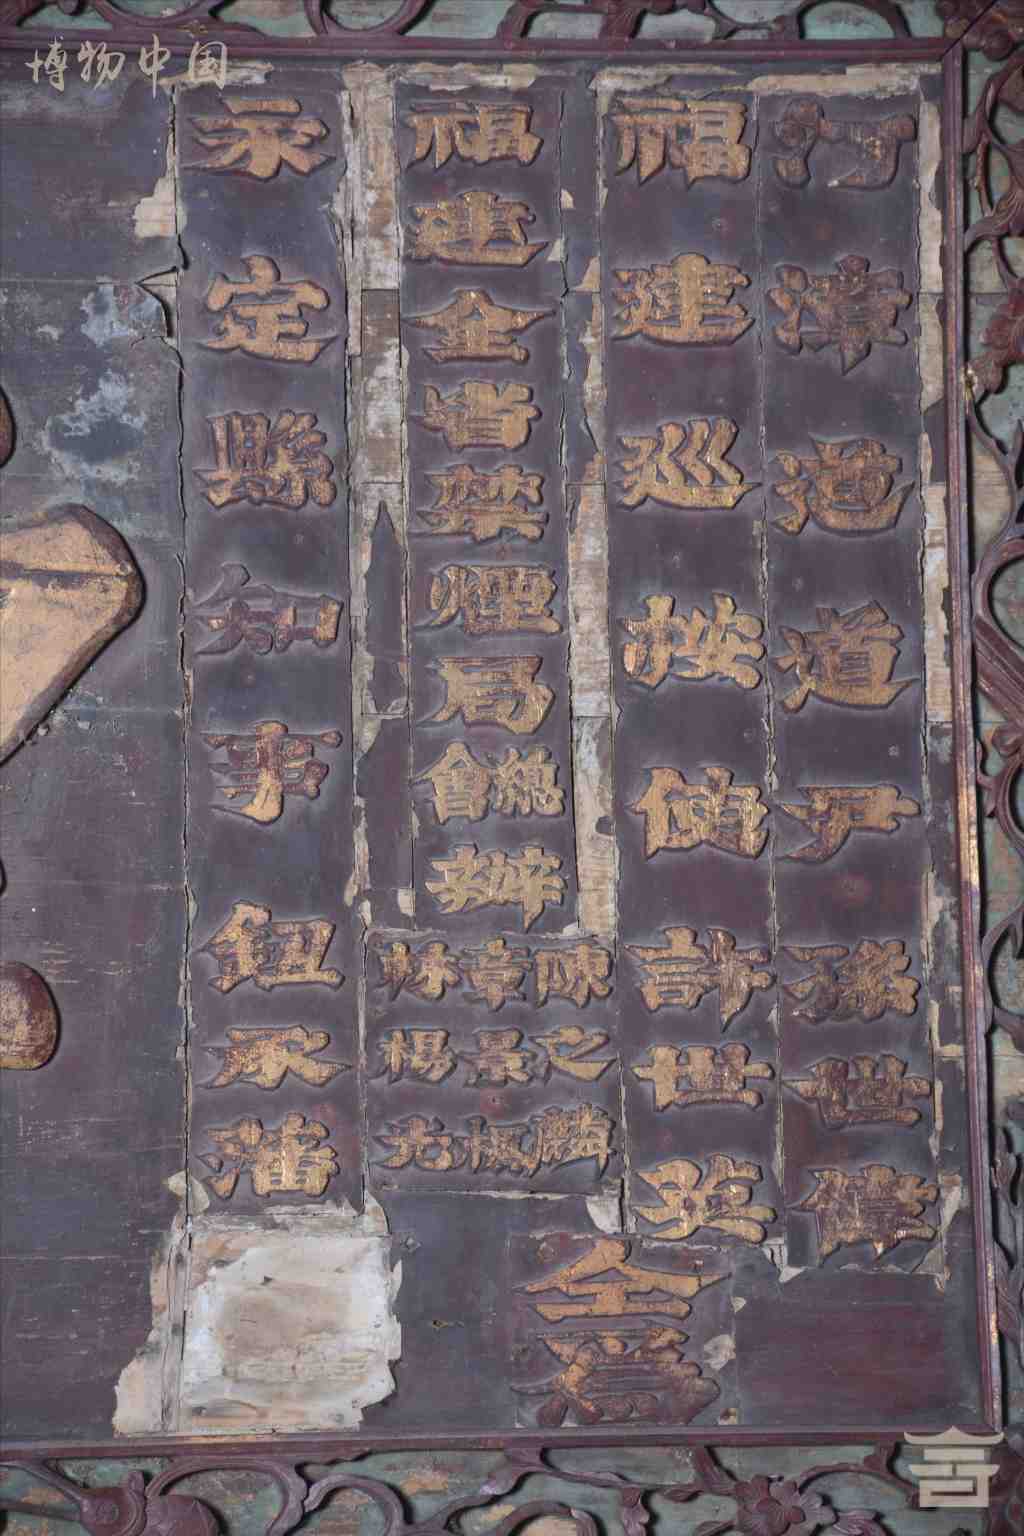 汀漳道道尹孫世偉
福建巡按使許世英
福建全省禁煙局總會辦
陳之麟
章景楓
林楊光
仝為
永定縣知事鈕承藩
博物中国